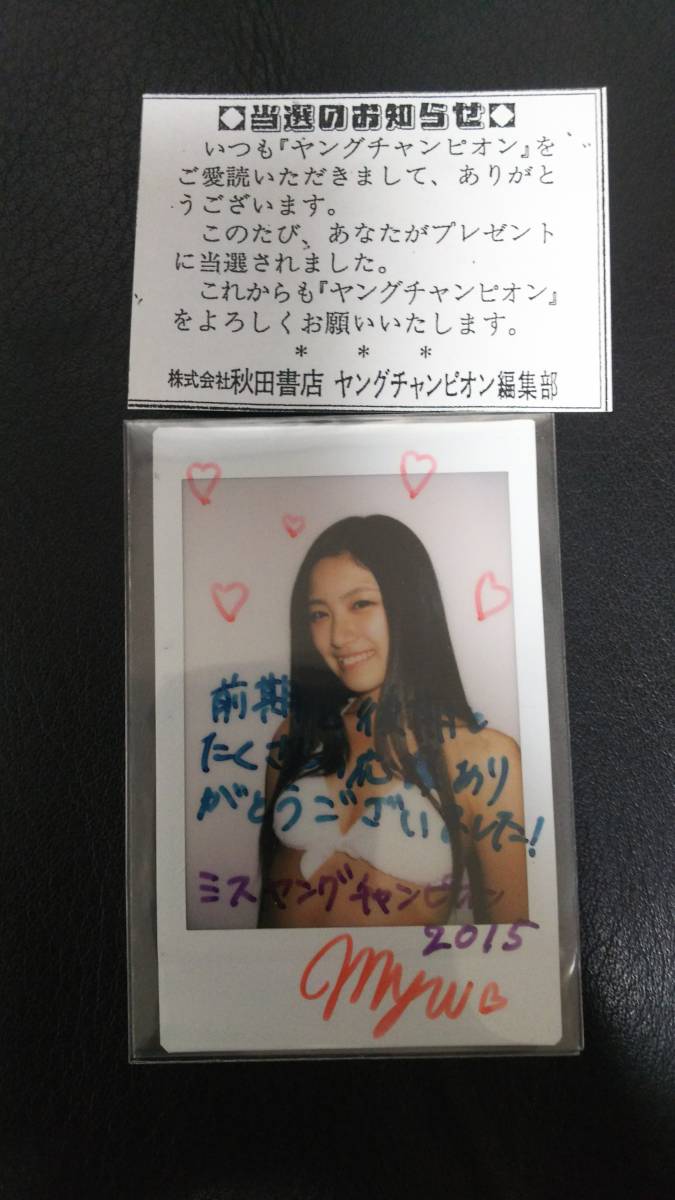 ◆当選のお知らせ◆
いつも『ヤングチャンピオン』を
ご愛読いただきまして、ありがと
うございます。
このたび、あなたがプレゼント
に当選されました。
これからも『ヤングチャンピオン』
をよろしくお願いいたします。
＊ ＊ ＊
株式会社秋田書店 ヤングチャンピオン編集部
前期と後期と
たくさんの応援あり
がとうございました!
ミスヤングチャンピオン
2015